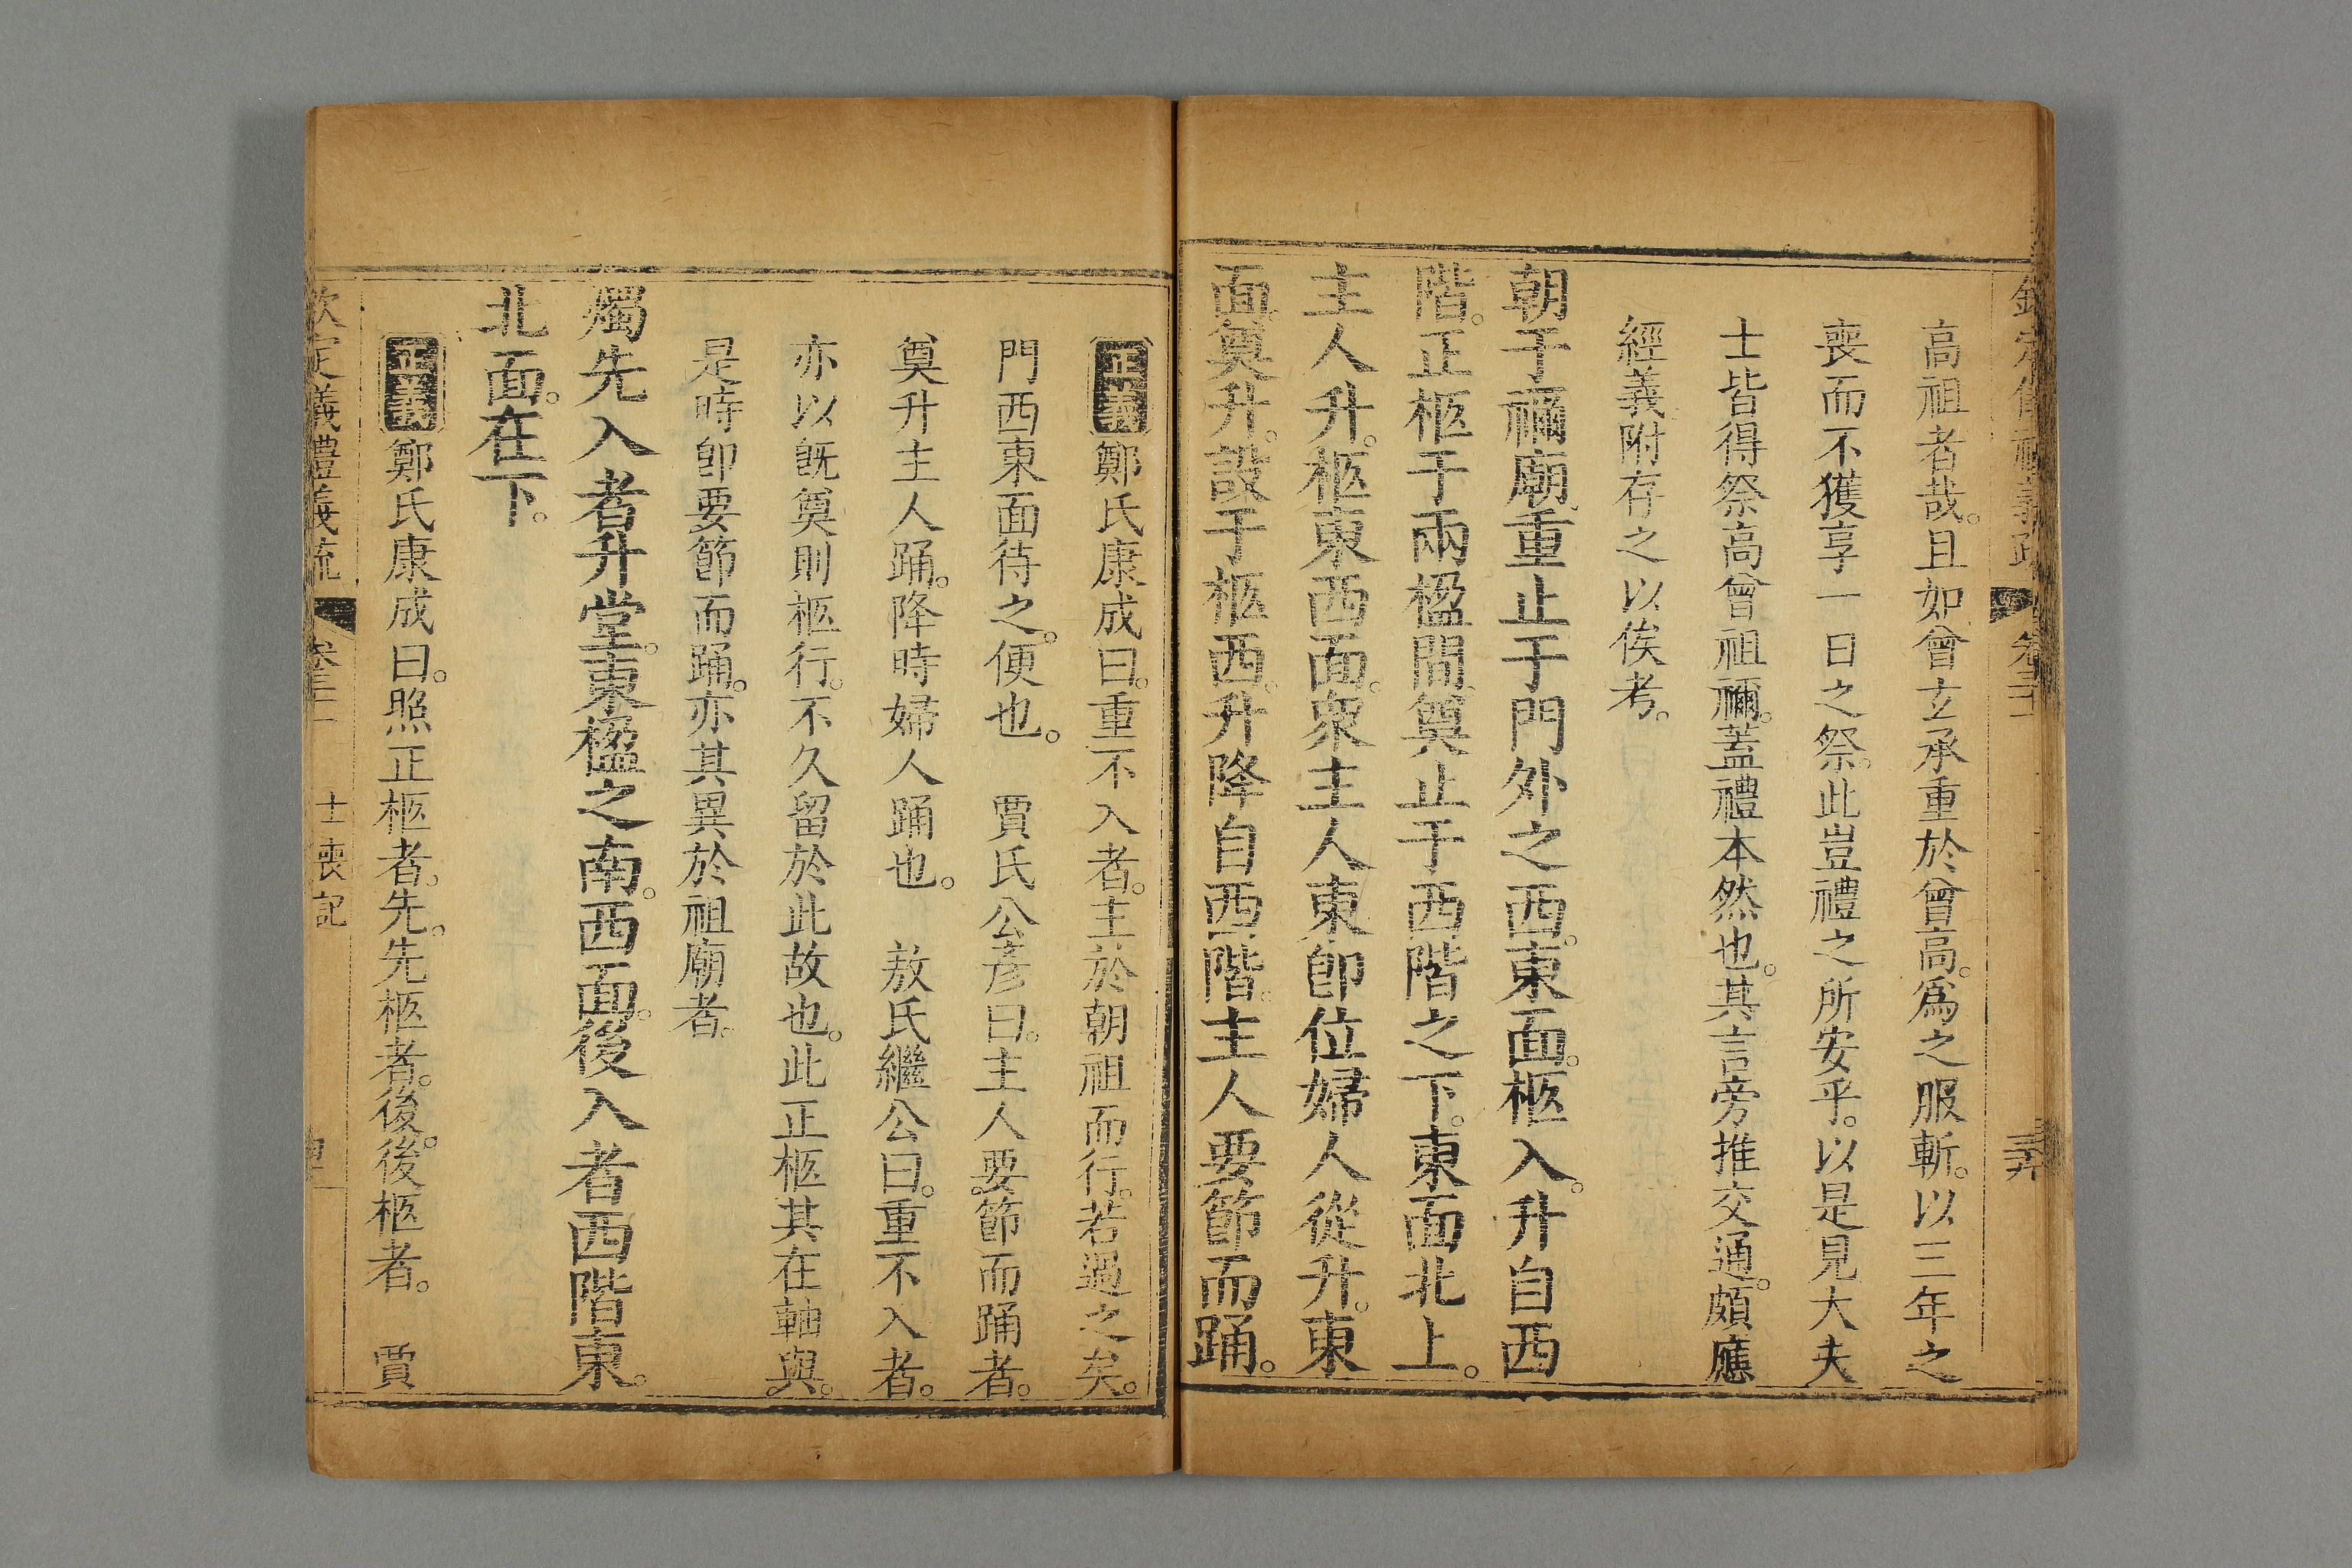 高祖者哉。且如曾玄承重於曾高。爲之服斬。以三年之
喪而不獲享一日之祭。此豈禮之所安乎。以是見大夫
士皆得祭高曾祖禰。蓋禮本然也。其言旁推交通。頗應
經義。附存之以俟考。
朝于禰廟。重止于門外之西。東面。柩入。升自西
階。正柩于兩楹間。奠止于西階之下。東面北上。
主人升。柩東西面。衆主人東即位。婦人從升。東
面。奠升。設于柩西。升降自西階。主人要節而踊。
正義鄭氏康成曰。重不入者。主於朝祖而行。若過之矣。
門西東面待之。便也。　賈氏公彥曰。主人要節而踊者。
奠升主人踊。降時婦人踊也。　敖氏繼公曰。重不入者。
亦以旣奠則柩行。不久留於此故也。此正柩其在軸與。
是時卽要節而踊。亦其異於祖廟者。
燭先入者升堂。東楹之南。西面。後入者西階東。
北面。在下。
正義鄭氏康成曰。照正柩者。先。先柩者。後。後柩者。　賈
欽定儀禮義疏　卷三十一　士喪記